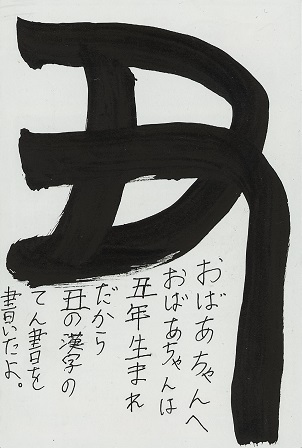 丑
おばあちゃんへ
おばあちゃんは
丑年生まれ
だから
丑の漢字の
てん書を
書いたよ。